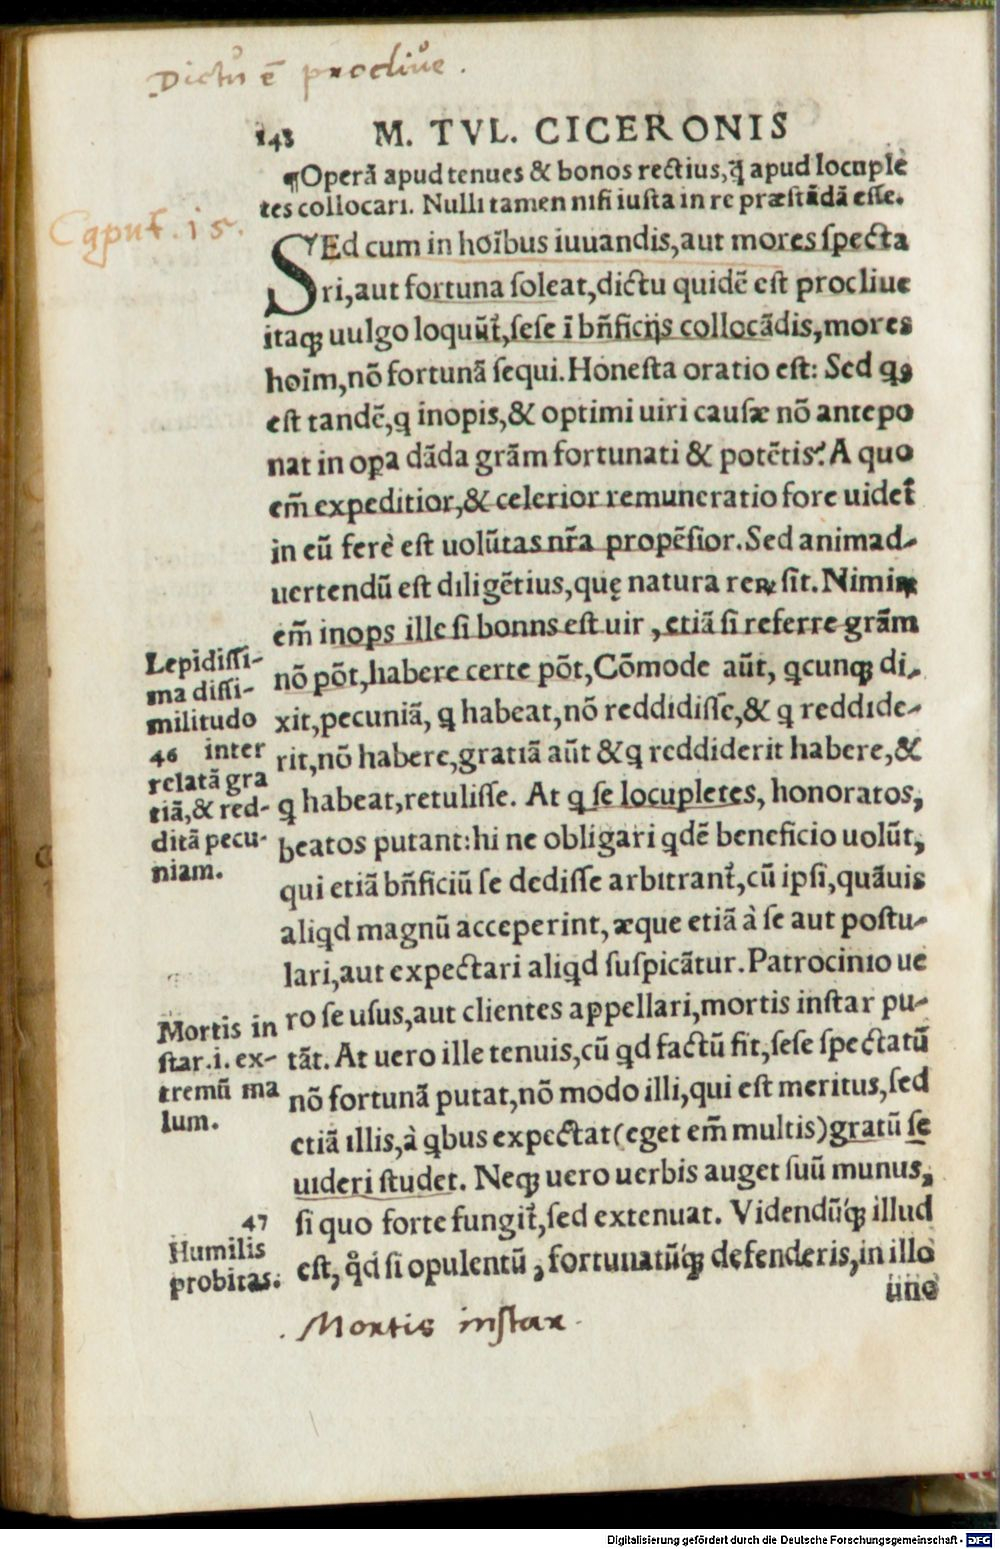 Dictũ ẽ procliue.
148 M. TVL. CICERONIS
¶Operã apud tenues & bonos rectius, q̃ apud locuple
tes collocari. Nulli tamen nisi iusta in re præstãdã esse.
Caput. 15.
SEd cum in hoĩbus iuuandis, aut mores specta
ri, aut fortuna soleat, dictu quidẽ est procliue
itaqꝫ uulgo loquũt᷑, sese ĩ bñficijs collocãdis, mores
hoĩm, nõ fortunã sequi. Honesta oratio est: Sed qs
est tandẽ, q inopis, & optimi uiri causæ nõ antepo
nat in oꝑa dãda grãm fortunati & potẽtis? A quo
em̃ expeditior, & celerior remuneratio fore uidet᷑
in eũ ferè est uolũtas nr̃a propẽsior. Sed animad-
uertendũ est diligẽtius, quę natura reꝝ sit. Nimiꝝ
em̃ inops ille si bonns est uir, etiã si referre grãm
nõ põt, habere certe põt, Cõmode aũt, qcunqꝫ di-
xit, pecuniã, q habeat, nõ reddidisse, & q reddide-
rit, nõ habere, gratiã aũt & q reddiderit habere, &
q habeat, retulisse. At q se locupletes, honoratos,
beatos putant: hi ne obligari qdẽ beneficio uolũt,
qui etiã bñficiũ se dedisse arbitrant᷑, cũ ipsi, quãuis
aliqd magnũ acceperint, æque etiã à se aut postu-
lari, aut expectari aliqd suspicãtur. Patrocinio ue
ro se usus, aut clientes appellari, mortis instar pu-
tãt. At uero ille tenuis, cũ qd factũ sit, sese spectatũ
nõ fortunã putat, nõ modo illi, qui est meritus, sed
etiã illis, à qbus expectat (eget em̃ multis) gratũ se
uideri studet. Neqꝫ uero uerbis auget suũ munus,
si quo forte fungit᷑, sed extenuat. Videndũqꝫ illud
est, qd̃ si opulentũ, fortunatũqꝫ defenderis, in illo
uno
Lepidissi-
ma dissi-
militudo
46 inter
relatã gra
tiã, & red-
ditã pecu-
niam.
Mortis in
star .i. ex-
tremũ ma
lum.
47
Humilis
probitas.
. Mortis instar.
Digitalisierung gefördert durch die Deutsche Forschungsgemeinschaft - DFG